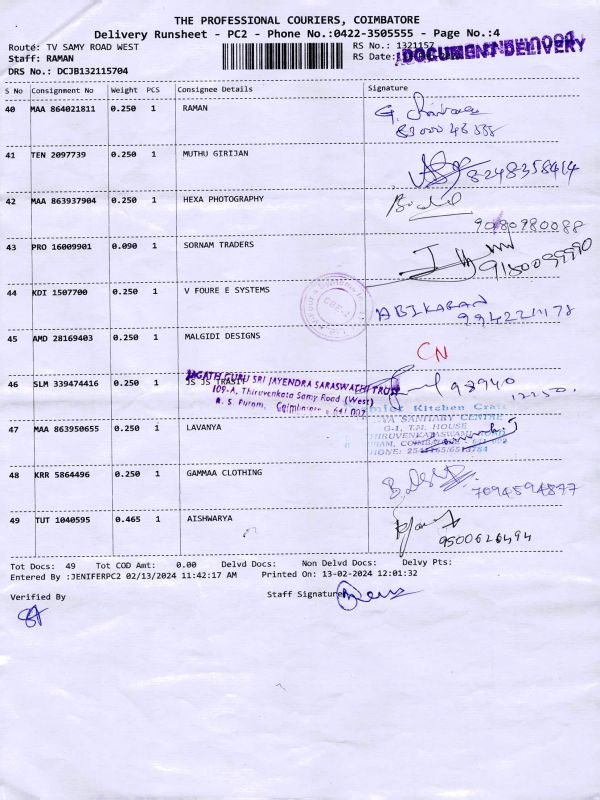 THE PROFESSIONAL COURIERS, COIMBATORE
Delivery Runsheet - PC2 - Phone No.:0422-3505555 - Page No.:4
Route: TV SAMY ROAD WEST
RS No.: 1321157
DOCUMENT DELIVERY
Staff: RAMAN
RS Date:
DRS No.: DCJB132115704
S No Consignment No Weight PCS Consignee Details Signature
40 MAA 864021811 0.250 1 RAMAN
41 TEN 2097739 0.250 1 MUTHU GIRIJAN
8248358414
42 MAA 863937904 0.250 1 HEXA PHOTOGRAPHY
9080980088
43 PRO 16009901 0.090 1 SORNAM TRADERS
44 KDI 1507700 0.250 1 V FOURE E SYSTEMS
ABIKARAN
45 AMD 28169403 0.250 1 MALGIDI DESIGNS
CN
46 SLM 339474416 0.250 1 JS JS TRAST
JAGATH GURU SRI JAYENDRA SARASWATHI TRUST
109-A, Thiruvenkata Samy Road (West)
R. S. Puram, Coimbatore - 641 002
98940
12250
Kitchen Craft
SANITARY CENTRE
G-1, T.M. HOUSE
47 MAA 863950655 0.250 1 LAVANYA
48 KRR 5864496 0.250 1 GAMMAA CLOTHING
7094594847
49 TUT 1040595 0.465 1 AISHWARYA
9500626494
Tot Docs: 49 Tot COD Amt: 0.00 Delvd Docs: Non Delvd Docs: Delvy Pts:
Entered By :JENIFERPC2 02/13/2024 11:42:17 AM Printed On: 13-02-2024 12:01:32
Verified By
Staff Signature